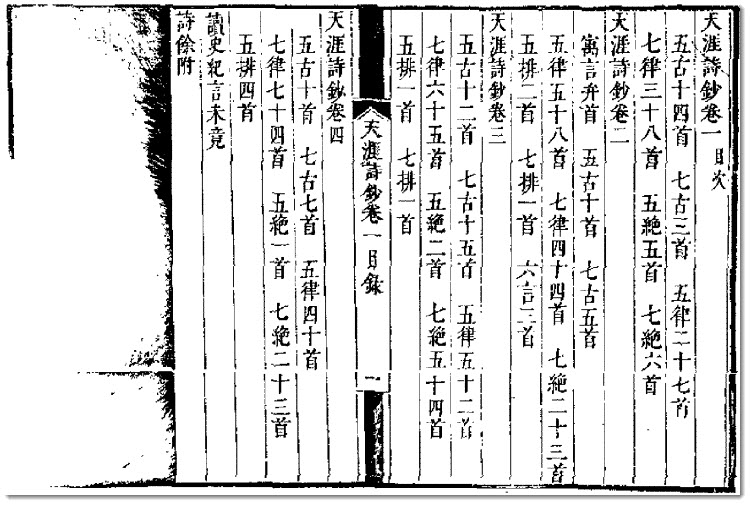 天涯詩鈔卷一 目次
五古十四首 七古三首 五律二十七首
七律三十八首 五絶五首 七絶六首
天涯詩鈔卷二
寓言弁首 五古十首 七古五首
五律五十八首 七律四十四首 七絶二十三首
五排二首 七排一首 六言三首
天涯詩鈔卷三
五古十二首 七古十五首 五律五十二首
七律六十五首 五絶二首 七絶五十四首
五排一首 七排一首
天涯詩鈔卷一目錄 一
天涯詩鈔卷四
五古十首 七古七首 五律四十首
七律七十四首 五絶一首 七絶二十三首
五排四首
讀史紀言未竟
詩餘附